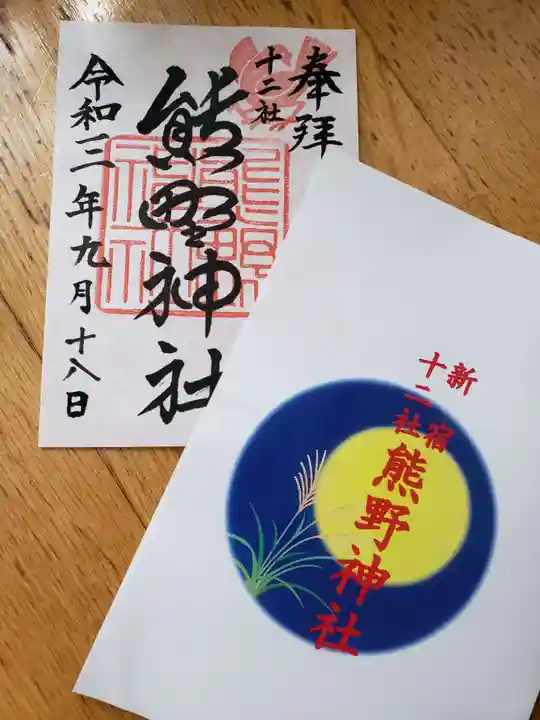 奉拝
十二社
熊野神社
令和三年九月十八日
熊野神社
新宿
十二社
熊野神社